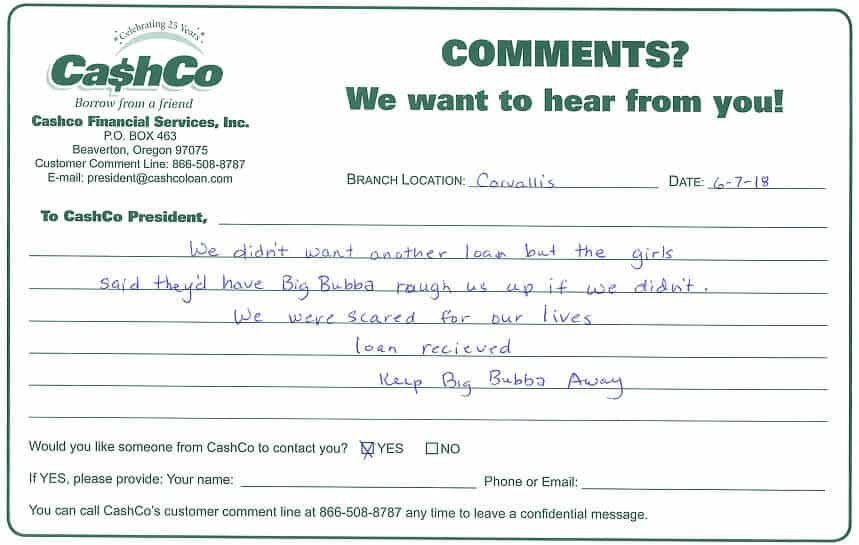 Celebrating 25 Years
Ca$hCo
Borrow from a friend
Cashco Financial Services, Inc.
P.O. BOX 463
Beaverton, Oregon 97075
Customer Comment Line: 866-508-8787
E-mail: president@cashcoloan.com
COMMENTS?
We want to hear from you!
BRANCH LOCATION: Corvallis DATE: 6-7-18
To CashCo President,
We didn't want another loan but the girls
said they'd have Big Bubba rough us up if we didn't.
We were scared for our lives
loan recieved
Keep Big Bubba Away
Would you like someone from CashCo to contact you? ☒ YES ☐ NO
If YES, please provide: Your name: Phone or Email:
You can call CashCo's customer comment line at 866-508-8787 any time to leave a confidential message.